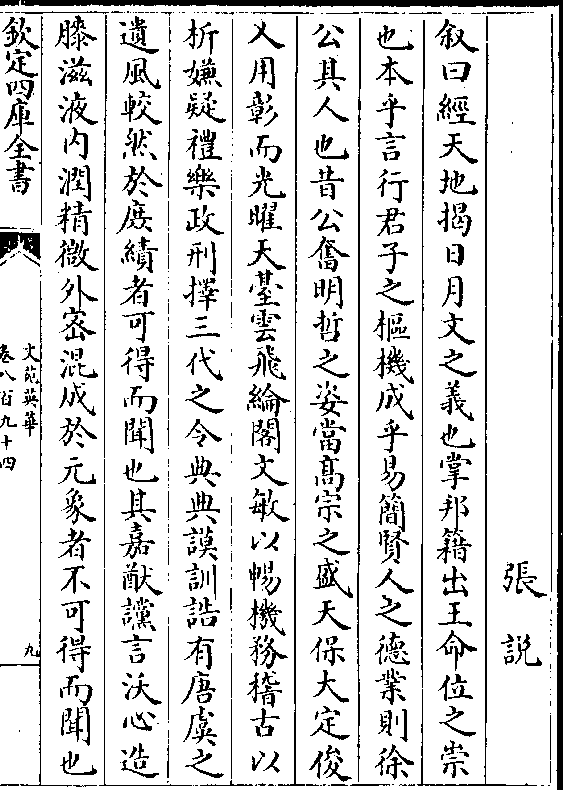 張說
敘曰經天地揭日月文之義也掌邦籍出王命位之崇
也本乎言行君子之樞機成乎易簡賢人之德業則徐
公其人也昔公奮明哲之姿當高宗之盛天保大定俊
乂用彰而光曜天臺雲飛綸閣文敏以暢機務稽古以
析嫌疑禮樂政刑擇三代之令典典謨訓誥有唐虞之
遺風較然於庶績者可得而聞也其嘉猷讜言沃心造
膝滋液內潤精微外密混成於元象者不可得而聞也
欽定四庫全書
文苑英華
卷八百九十四
九